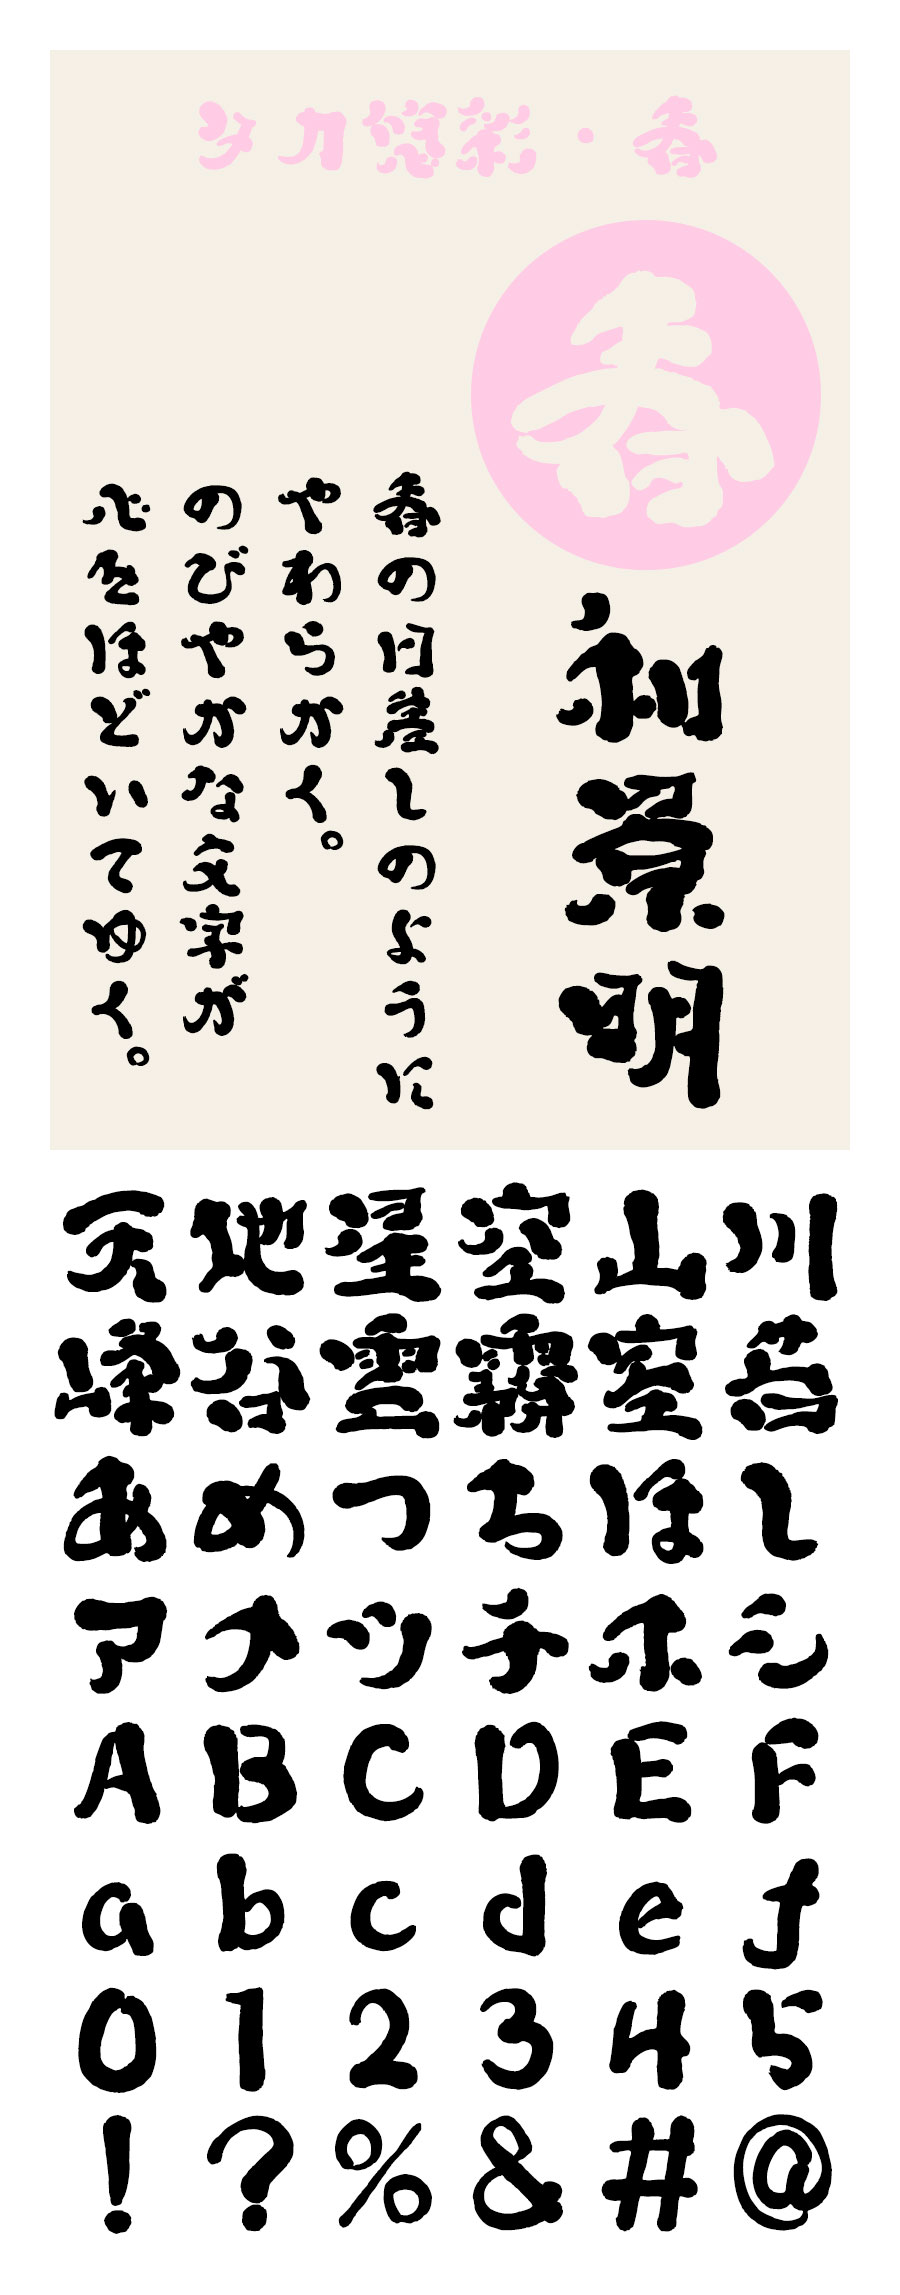 タカ悠彩・春
春
和景明
春の日差しのように
やわらかく。
のびやかな文字が
心をほどいてゆく。
天地星空山川
峰谷雲霧室苔
あめつちほし
アメツチホシ
ABCDEF
abcdef
012345
!?%&#@